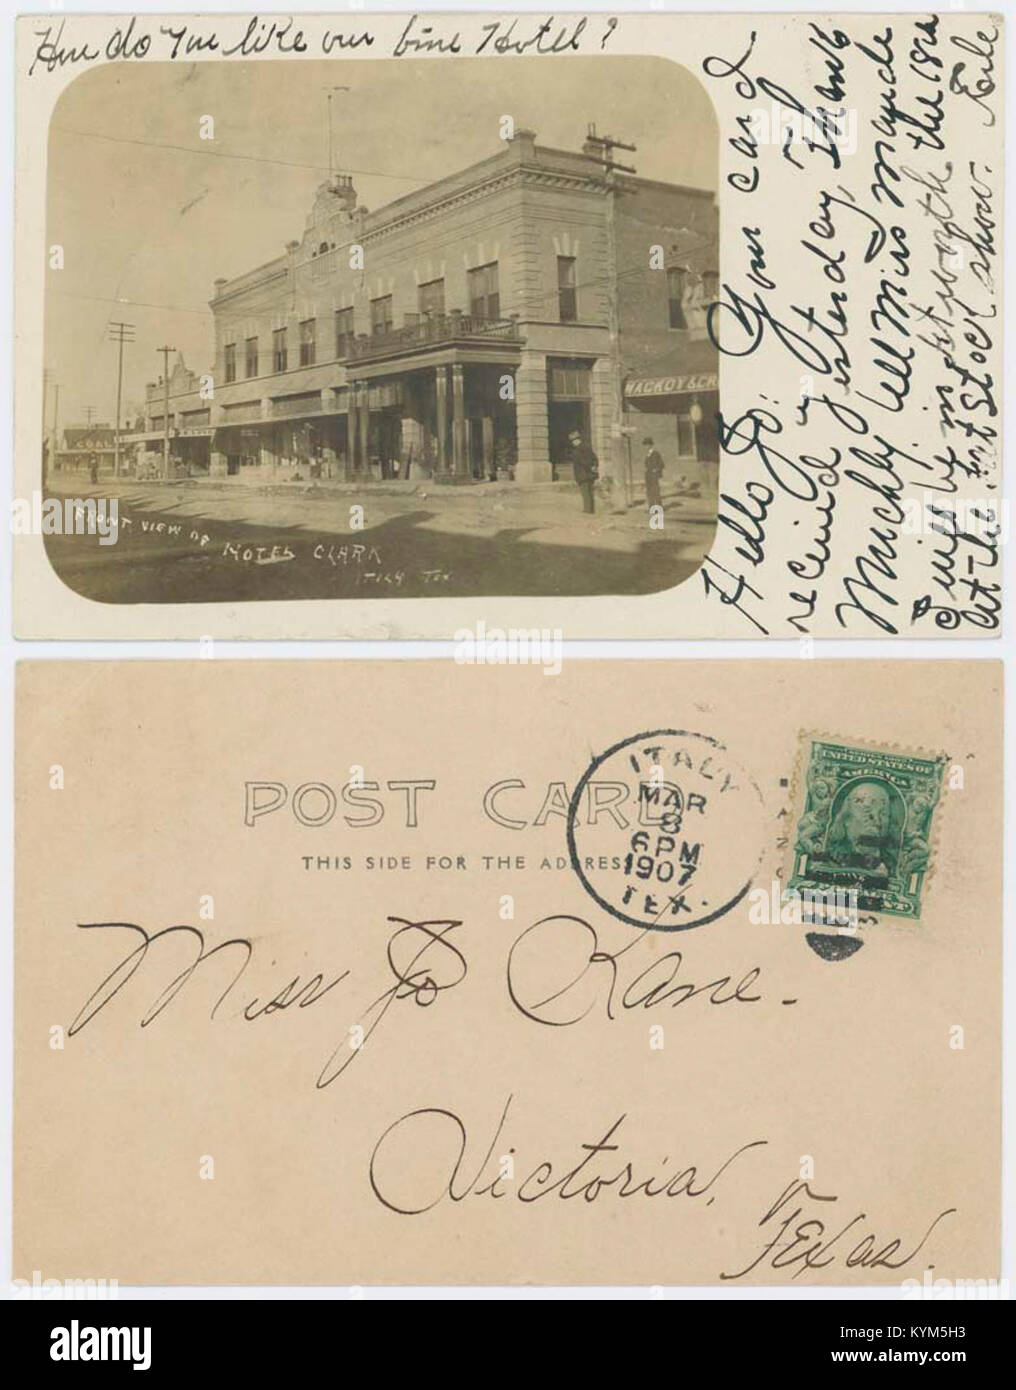 How do you like our fine Hotel?
Hello Jo: Your card
received yesterday, Thank
Muchly, Will Miss Mayde
I will be in Ft worth the 18th
at the Fat Stock show.
MACKOY & CR
COAL
FRONT VIEW OF HOTEL CLARK
ITALY TEX
POST CARD
THIS SIDE FOR THE ADDRESS
ITALY
MAR
8
6PM
1907
TEX.
UNITED STATES OF
AMERICA
1 1
Miss Jo Kane.
Victoria,
Texas.
alamy
a
alamy
Image ID: KYM5H3
www.alamy.com